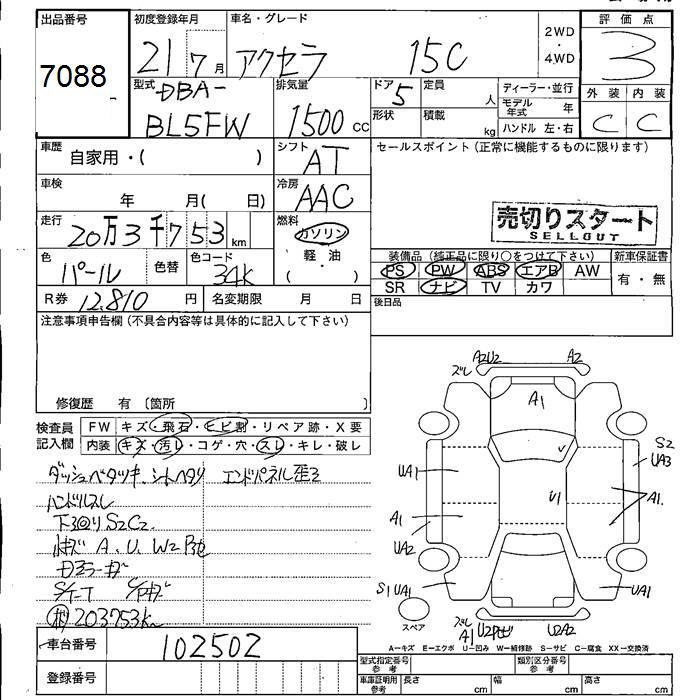 出品番号
7088
初度登録年月
21 7月
車名・グレード
アクセラ 15C
2WD
・
4WD
評価点
3
外装 内装
C C
型式
DBA-
BL5FW
排気量
1500 cc
ドア
5
定員
人
形状
積載
kg
ディーラー・並行
モデル年式 年
ハンドル 左・右
車歴
自家用・( )
シフト
AT
車検
年 月( 日)
冷房
AAC
走行
20万3千753 km
燃料
ガソリン
・
軽油
( )
色
パール
色替
色コード
34K
R券 12,810 円
名変期限 月 日
セールスポイント(正常に機能するものに限ります)
売切りスタート
SELLOUT
装備品(純正品に限り○をつけて下さい)
PS PW ABS エアB AW
SR ナビ TV カワ
新車保証書
有・無
後日品
注意事項申告欄(不具合内容等は具体的に記入して下さい)
修復歴 有〔箇所 〕
検査員
記入欄
FW キズ・飛石・ヒビ割・リペア跡・X要
内装 キズ・汚レ・コゲ・穴・スレ・キレ・破レ
ダッシュベタツキ、シートヘタリ エンドパネル歪3
ハンドルスレ
下回り S2C2
A、U、W2
203753k
車台番号
102502
登録番号
ズレ A2U2 A2
A1
S2
UA3
UA1
U1
A1
A1.
UA2
S1 UA1
UA1
スペア
ズレ
A1
U2A2
A-キズ E-エクボ U-凹み W-補修跡 S-サビ C-腐食 XX-交換済
型式指定番号
参考
類別区分番号
参考
車庫証明用
参考
長さ cm
幅 cm
高さ cm